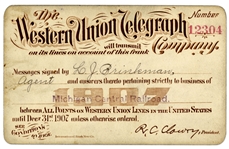 The Number
Western Union Telegraph 12304
will transmit Company.
on its lines on account of this frank
Messages signed by C. J. Brinkman,
Agent and answers thereto pertaining strictly to business of
1907
Michigan Central Railroad
between ALL POINTS on WESTERN UNION LINES in the UNITED STATES
until Decr 31st 1907 unless otherwise ordered.
SEE CONDITIONS
R. C. Clowry, President.